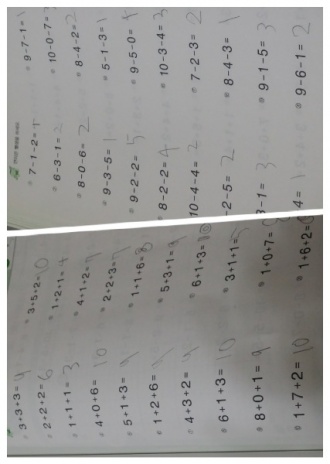 3+3+3=9
2+2+2=6
1+1+1=3
4+0+6=10
5+1+3=9
1+2+6=
4+3+2=9
6+1+3=10
8+0+1=9
1+7+2=10
3+5+2=10
1+2+1=4
4+1+2=7
2+2+3=7
1+1+6=8
5+3+1=9
6+1+3=10
3+1+1=5
1+0+7=
1+6+2=
7-1-2=4
6-3-1=2
8-0-6=2
9-3-5=1
9-2-2=5
8-2-2=4
10-4-4=2
-2-5=2
-1=3
4=1
9-7-1=1
10-0-7=3
8-4-2=2
5-1-3=1
9-5-0=4
10-3-4=3
7-2-3=2
8-4-3=1
9-1-5=3
9-6-1=2